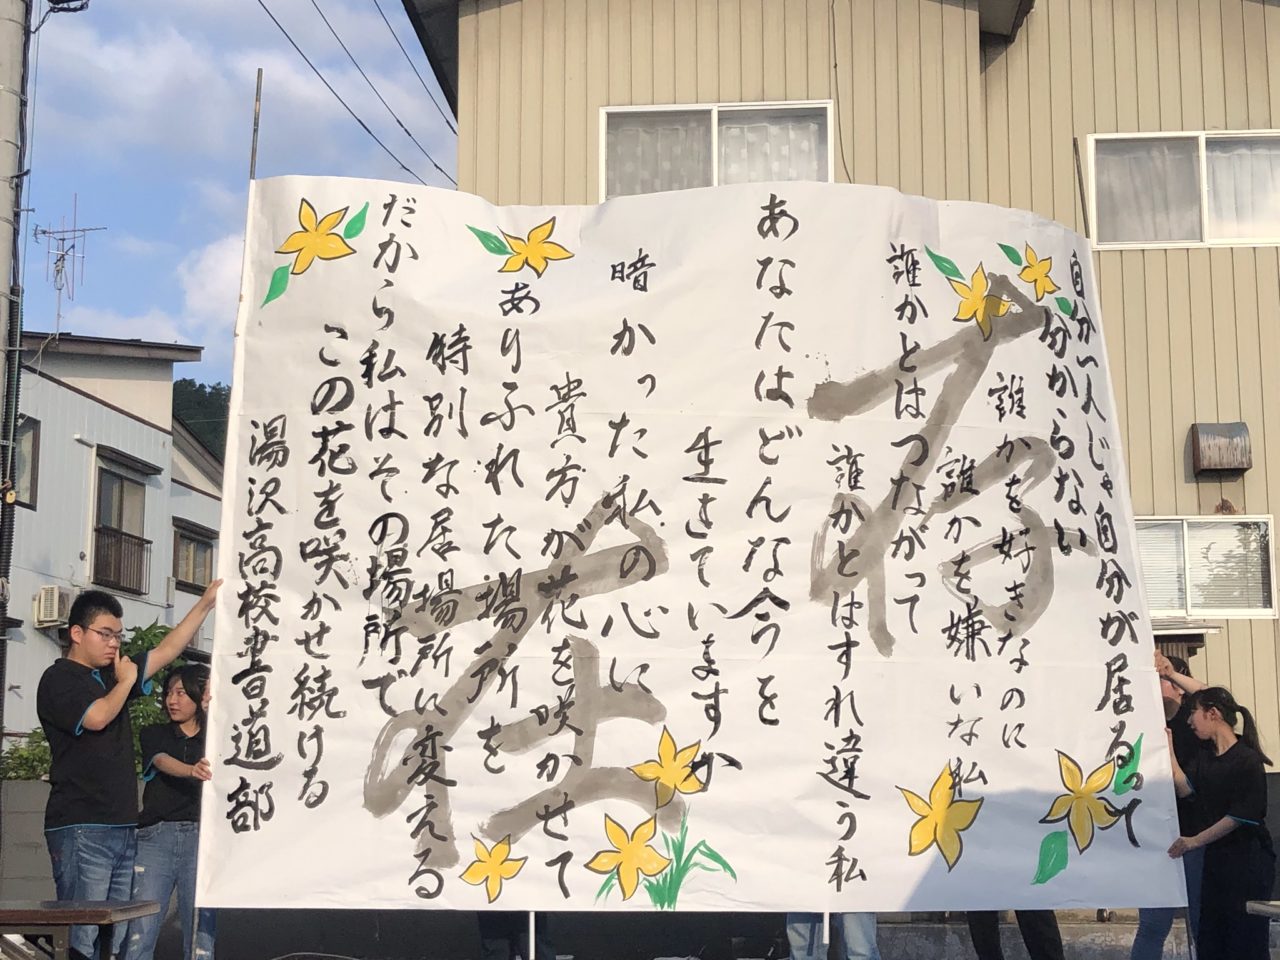 存在
自分一人じゃ自分が居るって
分からない
誰かを好きなのに
誰かを嫌いな私
誰かとはつながって
誰かとはすれ違う私
あなたはどんな今を
生きていますか
暗かった私の心に
貴方が花を咲かせて
ありふれた場所を
特別な居場所に変える
だから私はその場所で
この花を咲かせ続ける
湯沢高校書道部